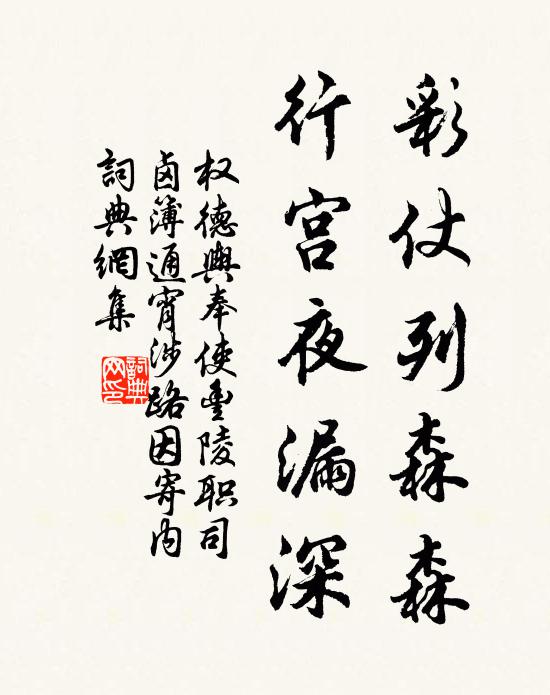 彩仗列森森
行宫夜漏深
权德舆奉使豊陵职司
卤簿通宵涉路因寄内
詞典網集
詞典网印